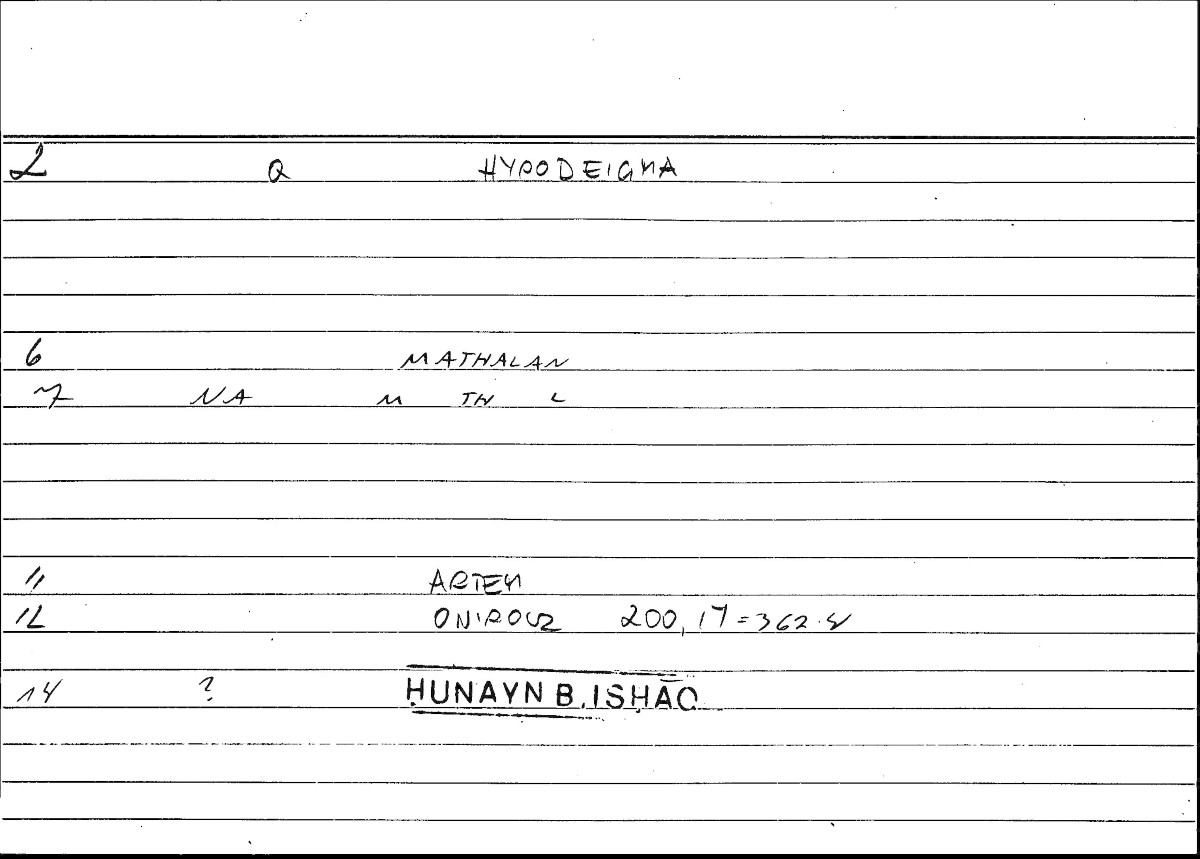 2 Q HYPODEIGMA
6 MATHALAN
7 NA M TH L
11 ARTEM
12 ONIROCR 200,17=362.8
14 ? ḤUNAYN B. ISḤĀQ